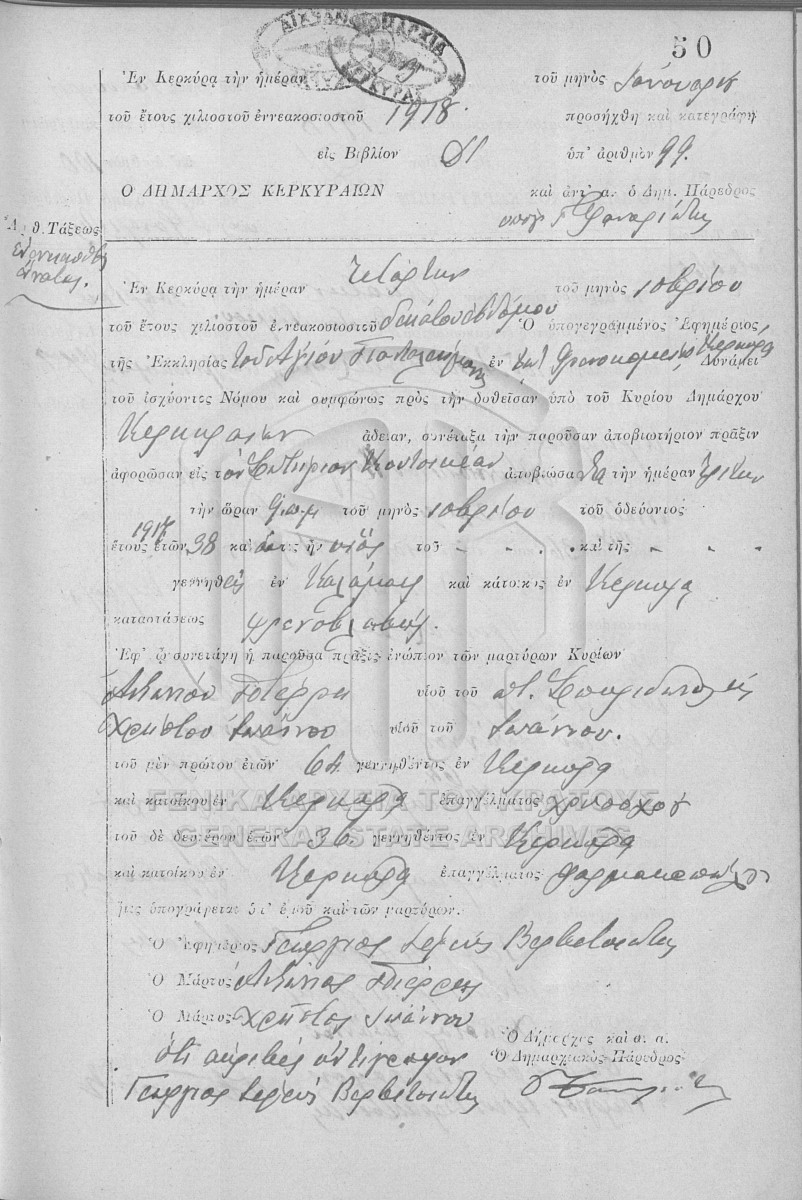 50
ΚΕΡΚΥΡΑΣ
Ἐν Κερκύρᾳ τὴν ἡμέραν τοῦ μηνὸς Ἰανουαρίου
τοῦ ἔτους χιλιοστοῦ ἐννεακοσιοστοῦ 1918. προσήχθη καὶ κατεγράφη
εἰς Βιβλίον ὑπ' ἀριθμὸν 99.
Ο ΔΗΜΑΡΧΟΣ ΚΕΡΚΥΡΑΙΩΝ καὶ ἀντ' α. ὁ Δημ. Πάρεδρος
Ἀριθ. Τάξεως
Ἐν Κερκύρᾳ τὴν ἡμέραν Τετάρτην τοῦ μηνὸς 10βρίου
τοῦ ἔτους χιλιοστοῦ ἐννεακοσιοστοῦ δεκάτου ἑβδόμου Ὁ ὑπογεγραμμένος Ἐφημέριος
τῆς Ἐκκλησίας τοῦ Ἁγίου Παντελεήμονος ἐν Φρενοκομείῳ Κερκύρας Δυνάμει
τοῦ ἰσχύοντος Νόμου καὶ συμφώνως πρὸς τὴν δοθεῖσαν ὑπὸ τοῦ Κυρίου Δημάρχου
Κερκυραίων ἄδειαν, συνέταξα τὴν παροῦσαν ἀποβιωτήριον πρᾶξιν
ἀφορῶσαν εἰς τὸν Σωτήριον ἀποβιώσαντα τὴν ἡμέραν Τρίτην
τὴν ὥραν 9 π.μ τοῦ μηνὸς 10βρίου τοῦ ὁδεύοντος
1917
ἔτους ἐτῶν 38 καὶ ὅστις ἦν υἱὸς τοῦ - - - . καὶ τῆς - - -
γεννηθεὶς ἐν Καλάμαις καὶ κάτοικος ἐν Κερκύρᾳ
καταστάσεως φρενοβλαβής.
Ἐφ' ᾧ συνετάγη ἡ παροῦσα πρᾶξις ἐνώπιον τῶν μαρτύρων Κυρίων
Ἀντωνίου Πιέρρη υἱοῦ τοῦ Σπυρίδωνος
Χρήστου Ἰωάννου υἱοῦ τοῦ Ἰωάννου.
τοῦ μὲν πρώτου ἐτῶν 64 γεννηθέντος ἐν Κερκύρᾳ
καὶ κατοίκου ἐν Κερκύρᾳ ἐπαγγέλματος χρυσοχοῦ
τοῦ δὲ δευτέρου ἐτῶν 36 γεννηθέντος ἐν Κερκύρᾳ
καὶ κατοίκου ἐν Κερκύρᾳ ἐπαγγέλματος φαρμακοποιοῦ
ἥτις ὑπογράφεται ὑπ' ἐμοῦ καὶ τῶν μαρτύρων.
Ὁ Ἐφημέριος Γεώργιος Ἱερεὺς Βερβιτσιώτης
Ὁ Μάρτυς Ἀντώνιος Πιέρρης
Ὁ Μάρτυς Χρῆστος Ἰωάννου
Ὁ Δήμαρχος καὶ α. α.
ὅτι ἀκριβὲς ἀντίγραφον Ὁ Δημαρχιακὸς Πάρεδρος
Γεώργιος Ἱερεὺς Βερβιτσιώτης
ΓΕΝΙΚΑ ΑΡΧΕΙΑ ΤΟΥ ΚΡΑΤΟΥΣ
GENERAL STATE ARCHIVES